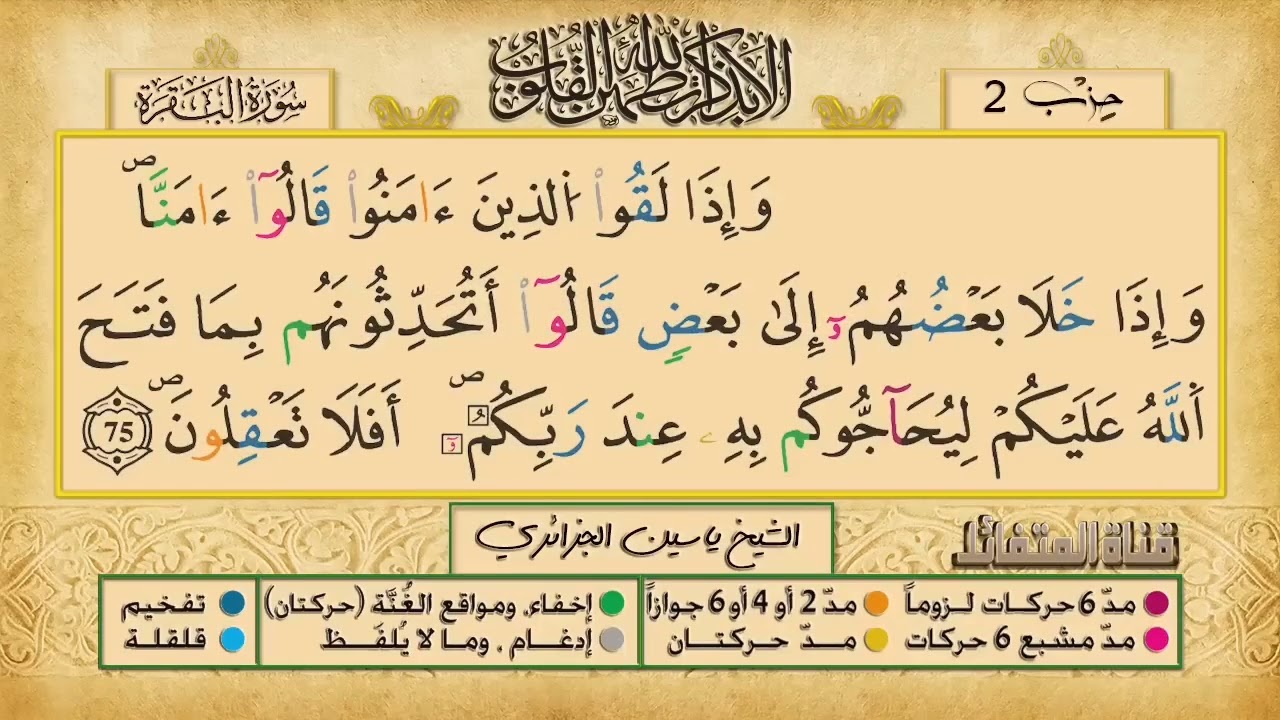 حِزْب 2
الا بذكر الله تطمئن القلوب
سُورَةُ البَقَرَة
وَإِذَا لَقُواْ اُلذِينَ ءَامَنُواْ قَالُوٓاْ ءَامَنَّاۖ
وَإِذَا خَلَا بَعْضُهُمُۥٓ إِلَىٰ بَعْضٖ قَالُوٓاْ أَتُحَدِّثُونَهُم بِمَا فَتَحَ
اَللَّهُ عَلَيْكُمْ لِيُحَآجُّوكُم بِهِۦ عِندَ رَبِّكُمُۥٓۖ أَفَلَا تَعْقِلُونَۖ 75
الشيخ ياسين الجزائري
قناة المتفائل
مدّ 6 حركات لـزوماً مدّ 2 أو 4 أو 6 جوازاً إخفاء، ومواقع الغُنَّة (حركتان) تفخيم
مدّ مشبع 6 حركات مـدّ حركتـان إدغـام ، ومـا لا يُلفَـظ قلقلة